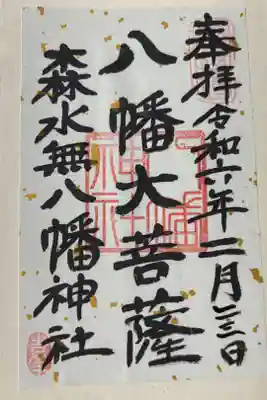 奉拝令和六年二月三日
八幡大菩薩
森水無八幡神社